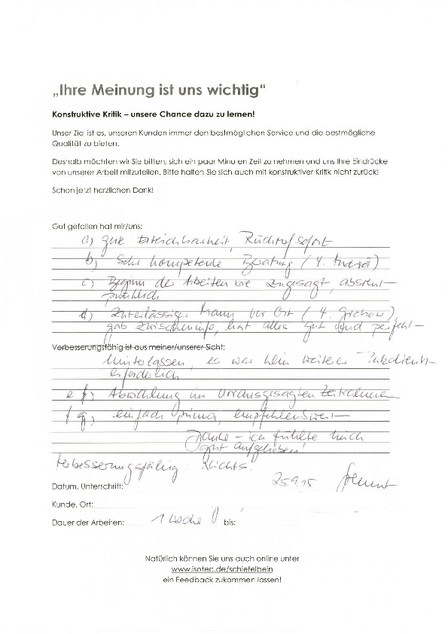 „Ihre Meinung ist uns wichtig“
Konstruktive Kritik – unsere Chance dazu zu lernen!
Unser Ziel ist es, unseren Kunden immer den bestmöglichen Service und die bestmögliche
Qualität zu bieten.
Deshalb möchten wir Sie bitten, sich ein paar Minuten Zeit zu nehmen und uns Ihre Eindrücke
von unserer Arbeit mitzuteilen. Bitte halten Sie sich auch mit konstruktiver Kritik nicht zurück!
Schon jetzt herzlichen Dank!
Gut gefallen hat mir/uns:
a) gute Erreichbarkeit, Rückruf sofort
b) Sehr kompetente Beratung (
c) Beginn der Arbeiten wie zugesagt, absolut
pünktlich
d) Zuverlässiger Mann vor Ort (
gab Zwischeninfo, hat alles gut und perfekt
Verbesserungsfähig ist aus meiner/unserer Sicht:
hinterlassen, es war kein weiterer
erforderlich
e) Abwicklung im vorausgesagten Zeitrahmen
f) einfach prima, empfehlenswert
Danke – ich fühlte mich
gut aufgehoben!
Verbesserungsfähig: Nichts.
Datum, Unterschrift: 25.9.15
Kunde, Ort:
Dauer der Arbeiten: 1 Woche bis:
Natürlich können Sie uns auch online unter
www.isotec.de/schiefelbein
ein Feedback zukommen lassen!